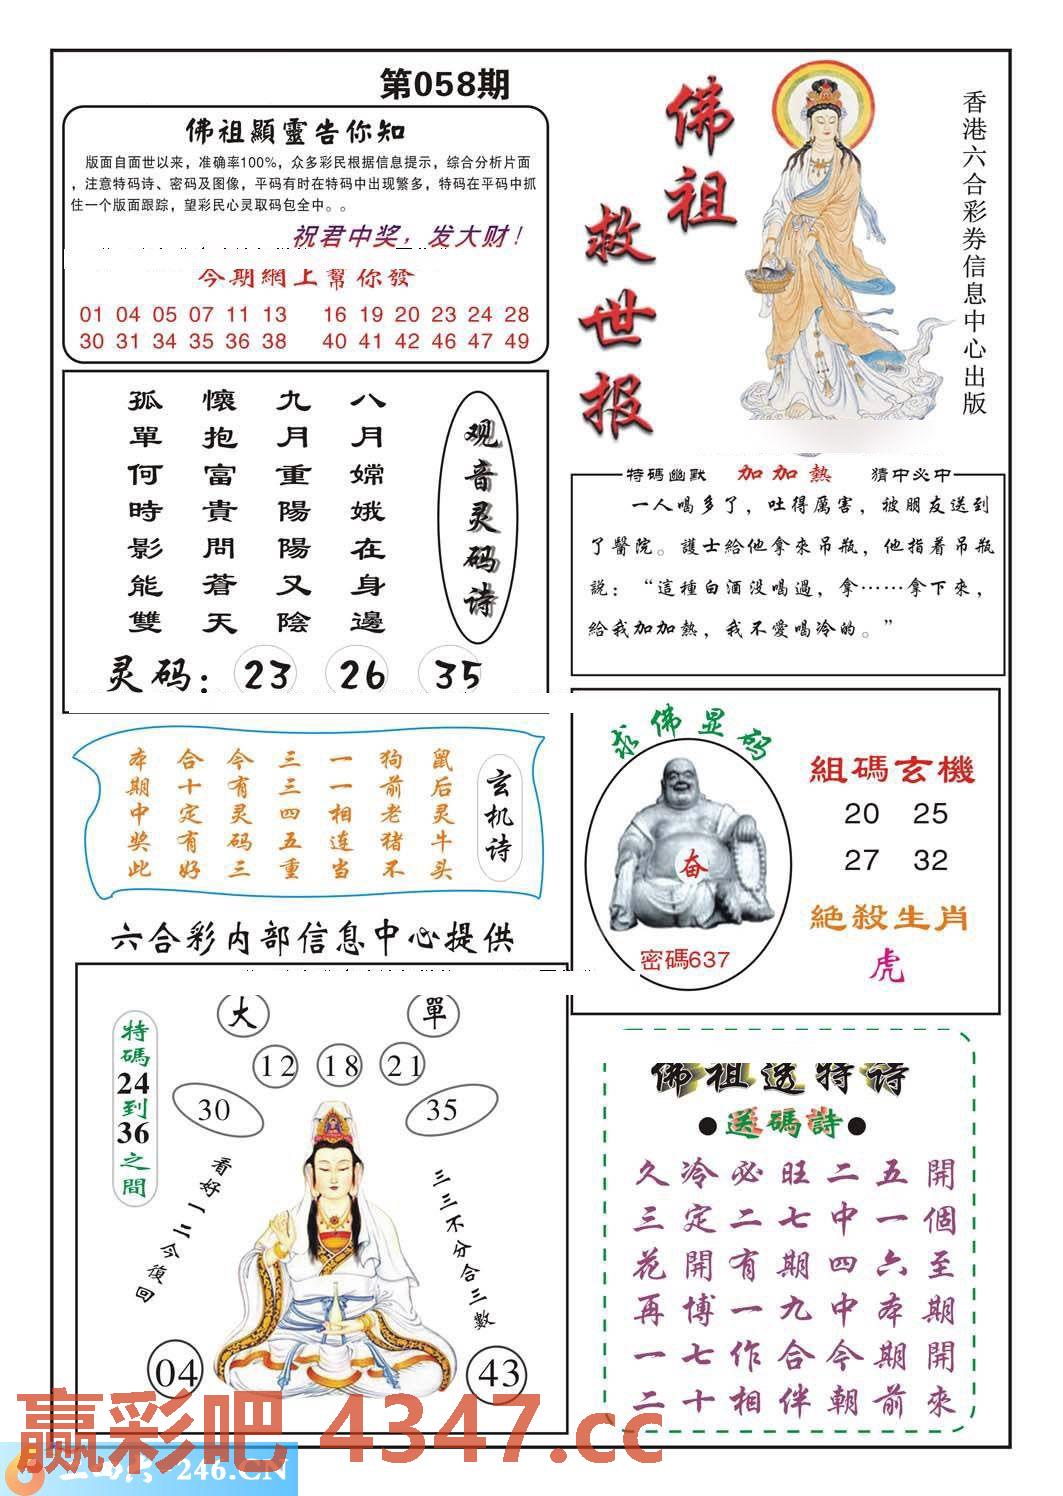 第058期
佛祖顯靈告你知
版面自面世以来，准确率100%，众多彩民根据信息提示，综合分析片面
，注意特码诗、密码及图像，平码有时在特码中出现繁多，特码在平码中抓
住一个版面跟踪，望彩民心灵取码包全中。。
祝君中奖，发大财！
今期網上幫你發
01 04 05 07 11 13 16 19 20 23 24 28
30 31 34 35 36 38 40 41 42 46 47 49
佛祖
救世报
香港六合彩券信息中心出版
观音灵码诗
八月嫦娥在身邊
九月重陽陽又陰
懷抱富貴問蒼天
孤單何時影能雙
灵码：23 26 35
特碼幽默 加加熱 猜中必中
一人喝多了，吐得厲害，被朋友送到
了醫院。護士給他拿來吊瓶，他指着吊瓶
説：“這種白酒没喝過，拿……拿下來，
給我加加熱，我不愛喝冷的。”
玄机诗
鼠后灵牛头
狗前老猪不
一一相连当
三三四五重
今有灵码三
合十定有好
本期中奖此
求佛显码
奋
密碼637
組碼玄機
20 25
27 32
絕殺生肖
虎
六合彩内部信息中心提供
大 單
12 18 21
30 35
特碼24到36之間
看好一二今復回
三三不分合三數
04 43
佛祖透特诗
●送碼詩●
久冷必旺二五開
三定二七中一個
花開有期四六至
再博一九中本期
一七作合今期開
二十相伴朝前來
赢彩吧 4347.cc
246.CN